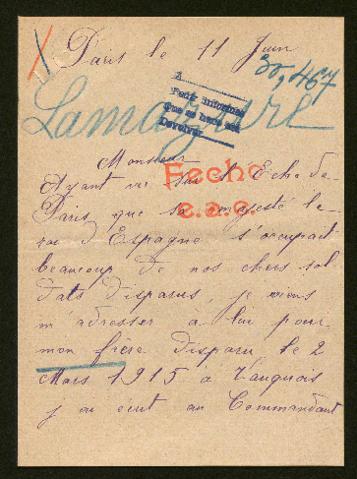 Paris le 11 Juin
30,467
Lamazure
A
Pedir informes
Que se haga
Devolver
Monsieur
Fecho
Ayant vu sur l'Echo de
Paris que sa magesté le
e.a.c.
roi d'Espagne s'occupait
beaucoup de nos chers sol
dats disparus, je viens
m'adresser à lui pour
mon frère disparu le 2
Mars 1915 à Vauquois
j ai écrit au Commandant